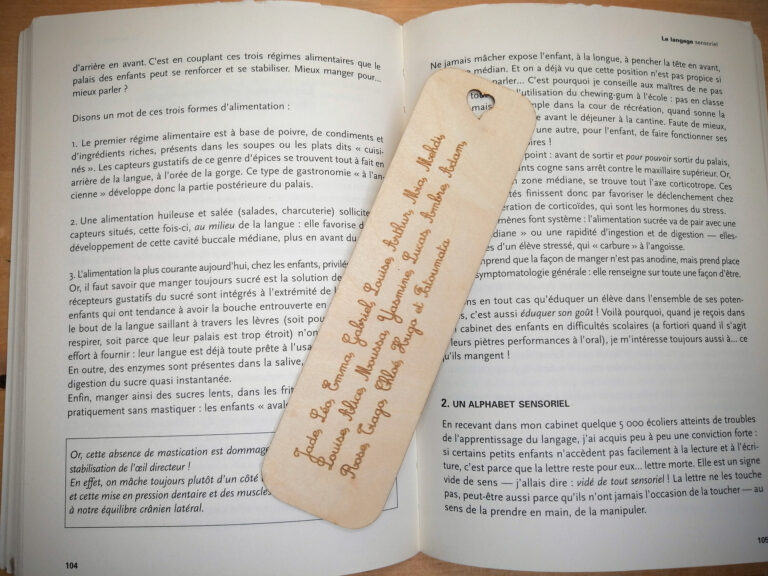 d'arrière en avant. C'est en couplant ces trois régimes alimentaires que le
palais des enfants peut se renforcer et se stabiliser. Mieux manger pour...
mieux parler ?
Disons un mot de ces trois formes d'alimentation :
1. Le premier régime alimentaire est à base de poivre, de condiments et
d'ingrédients riches, présents dans les soupes ou les plats dits « cuisi-
nés ». Les capteurs gustatifs de ce genre d'épices se trouvent tout à fait en
arrière de la langue, à l'orée de la gorge. Ce type de gastronomie « à l'an-
cienne » développe donc la partie postérieure du palais.
2. Une alimentation huileuse et salée (salades, charcuterie) sollicite
capteurs situés, cette fois-ci, au milieu de la langue : elle favorise
développement de cette cavité buccale médiane, plus en avant du
3. L'alimentation la plus courante aujourd'hui, chez les enfants,
Or, il faut savoir que manger toujours sucré est la solution de
récepteurs gustatifs du sucré sont intégrés à l'extrémité de
enfants qui ont tendance à avoir la bouche entrouverte en
le bout de la langue saillant à travers les lèvres (soit
respirer, soit parce que leur palais est trop étroit)
effort à fournir : leur langue est déjà toute prête à
En outre, des enzymes sont présentes dans la salive,
digestion du sucre quasi instantanée.
Enfin, manger ainsi des sucres lents, dans les
pratiquement sans mastiquer : les enfants
Or, cette absence de mastication est
stabilisation de l'œil directeur !
En effet, on mâche toujours plutôt d'un côté
et cette mise en pression dentaire et des muscles
à notre équilibre crânien latéral.
104
Jade, Léo, Emma, Gabriel, Louise, Arthur, Mia, Mehdi,
Louise, Alice, Moussa, Yasmine, Lucas, Ambre, Adam,
Rose, Tiago, Chloé, Hugo et Fatoumata
Le langage sensoriel
Ne jamais mâcher expose l'enfant, à la langue, à pencher la tête en avant,
médian. Et on a déjà vu que cette position n'est pas propice si
parler... C'est pourquoi je conseille aux maîtres de ne pas
l'utilisation du chewing-gum à l'école : pas en classe
mais dans la cour de récréation, quand sonne la
avant le déjeuner à la cantine. Faute de mieux,
une autre, pour l'enfant, de faire fonctionner ses
point : avant de sortir et pour pouvoir sortir du palais,
cogne sans arrêt contre le maxillaire supérieur. Or,
zone médiane, se trouve tout l'axe corticotrope. Ces
finissent donc par favoriser le déclenchement chez
de corticoïdes, qui sont les hormones du stress.
font système : l'alimentation sucrée va de pair avec une
» ou une rapidité d'ingestion et de digestion — elles-
d'un élève stressé, qui « carbure » à l'angoisse.
que la façon de manger n'est pas anodine, mais prend place
symptomatologie générale : elle renseigne sur toute une façon d'être.
en tout cas qu'éduquer un élève dans l'ensemble de ses poten-
c'est aussi éduquer son goût ! Voilà pourquoi, quand je reçois dans
cabinet des enfants en difficultés scolaires (a fortiori quand il s'agit
leurs piètres performances à l'oral), je m'intéresse toujours aussi à... ce
qu'ils mangent !
2. UN ALPHABET SENSORIEL
En recevant dans mon cabinet quelque 5 000 écoliers atteints de troubles
de l'apprentissage du langage, j'ai acquis peu à peu une conviction forte :
si certains petits enfants n'accèdent pas facilement à la lecture et à l'écri-
ture, c'est parce que la lettre reste pour eux... lettre morte. Elle est un signe
vide de sens — j'allais dire : vidé de tout sensoriel ! La lettre ne les touche
pas, peut-être aussi parce qu'ils n'ont jamais l'occasion de la toucher — au
sens de la prendre en main, de la manipuler.
105